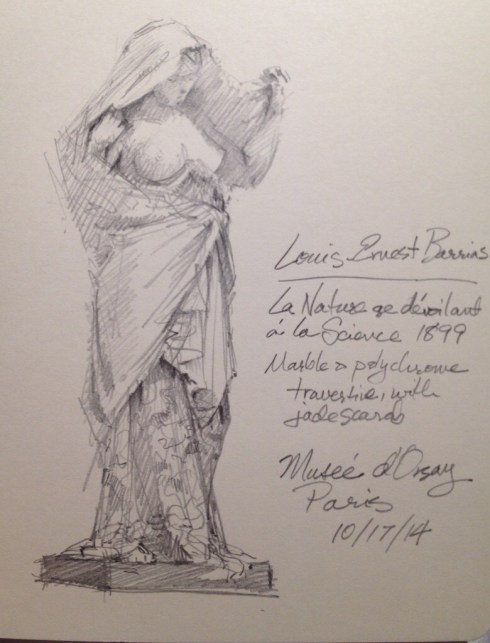 Louis Ernest Barrias
La Nature se dévoilant
à la Science 1899
Marble & polychrome
travertine, with
jade scarab
Museé d'Orsay
Paris
10/17/14